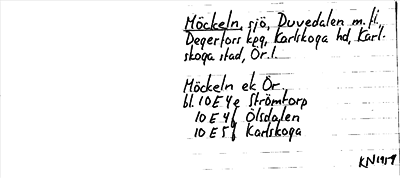 Möckeln, sjö, Duvedalen m. fl.,
Degerfors kpg, Karlskoga hd, Karl-
skoga stad, Ör. l.
Möckeln ek Ör
bl. 10 E 4 e Strömtorp
10 E 4 f Ölsdalen
10 E 5 f Karlskoga
KN 1959